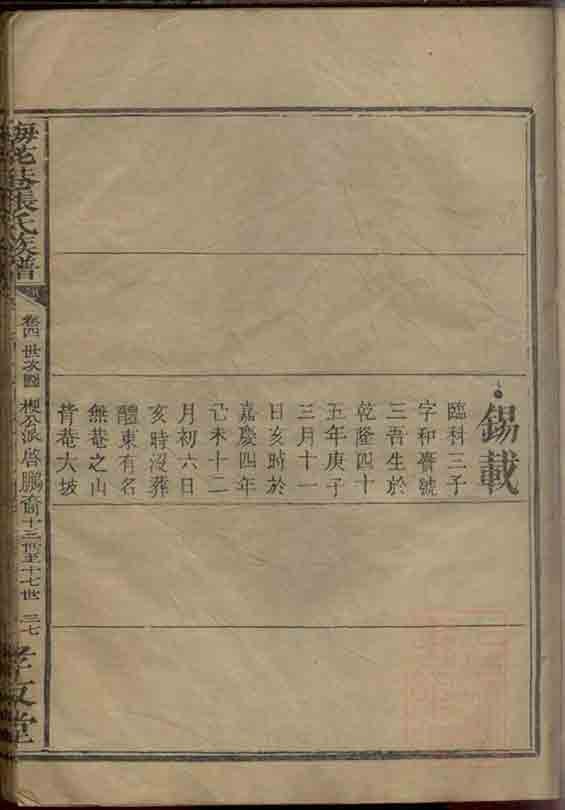 錫載
臨科三子
字和齋號
三吾生於
乾隆四十
五年庚子
三月十一
日亥時於
嘉慶四年
己未十二
月初六日
亥時沒葬
醴東有名
無菴之山
背菴大坡
梅花巷張氏族譜
卷四 世次圖 梗公派 啓鵬裔 十三世至十七世 三七
孝友堂